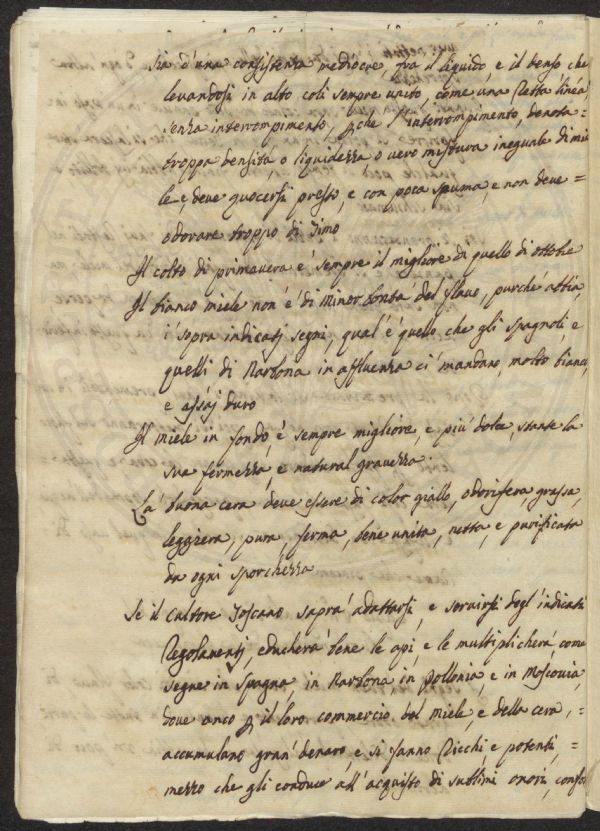 sia d'una consistenza mediocre, fra il liquido, e il denso che
levandosi in alto coli sempre unito, come una Retta linea
senza interrompimento, perche l'interrompimento, denota=
troppa densità, o liquidezza o vero mistura ineguale di mie
le e, deve quocersi presto, e con poca spuma, e non deve=
odorare troppo di Timo
Il colto di primavera é sempre il migliore di quello di ottobre
Il bianco miele non é di Minor bontà del flavo, purche abbia
i sopra indicati segni, qual'é quello che gli Spagnoli, e
quelli di Narbona in affluenza ci mandano, molto bianco,
e assaj duro
Il miele in fondo, é sempre migliore, e piú dolce, stante la
sua fermezza, e natural gravezza.
La buona cera deve essere di color giallo, odorifera, grassa,
leggiera, pura, ferma, bene unita, netta, e purificata
da ogni sporchezza
Se il Cultore Toscano saprá adattarsi, e servirsi degl'indicati
Regolamentj, educherá bene le api e le multiplicherá, come
segue in Spagna, in Narbona, in Pollonia, e in Moscovia,
dove anco per il loro commercio, del miele, e della cera, =
accumulano gran denaro, e si fanno Ricchi, e potenti, =
mezzo che gli conduce all'acquisto di sublimi onori, confor